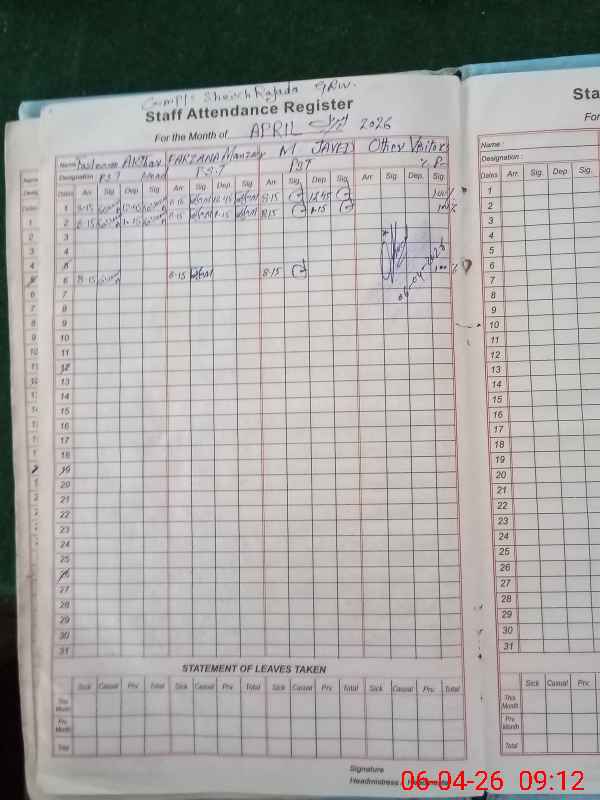 Staff Attendance Register
For the Month of APRIL 2026
Name AKhtar FARZANA Manzoor M JAVED Other Visitors
Designation : P.S.T Head P.S.T PST % P-
Dates Arr. Sig. Dep. Sig. Arr. Sig. Dep. Sig. Arr. Sig. Dep. Sig. Arr. Sig. Dep. Sig.
1 8-15 12-45 8-15 12-45 8-15 12-45 100%
2 8-15 1-15 8-15 1-15 8-15 1-15 100%
3
4
5
6 8-15 8-15 8-15 100%
06-04-2026
7
8
9
10
11
12
13
14
15
16
17
18
19
20
21
22
23
24
25
26
27
28
29
30
31
STATEMENT OF LEAVES TAKEN
Sick Casual Prv. Total Sick Casual Prv. Total Sick Casual Prv. Total Sick Casual Prv. Total
This Month
Prv. Month
Total
Signature
Headmistress /
Sta
For
Name :
Designation :
Dates Arr. Sig. Dep. Sig.
1
2
3
4
5
6
7
8
9
10
11
12
13
14
15
16
17
18
19
20
21
22
23
24
25
26
27
28
29
30
31
Sick Casual Prv. Total
This Month
Prv. Month
Total
06-04-26 09:12